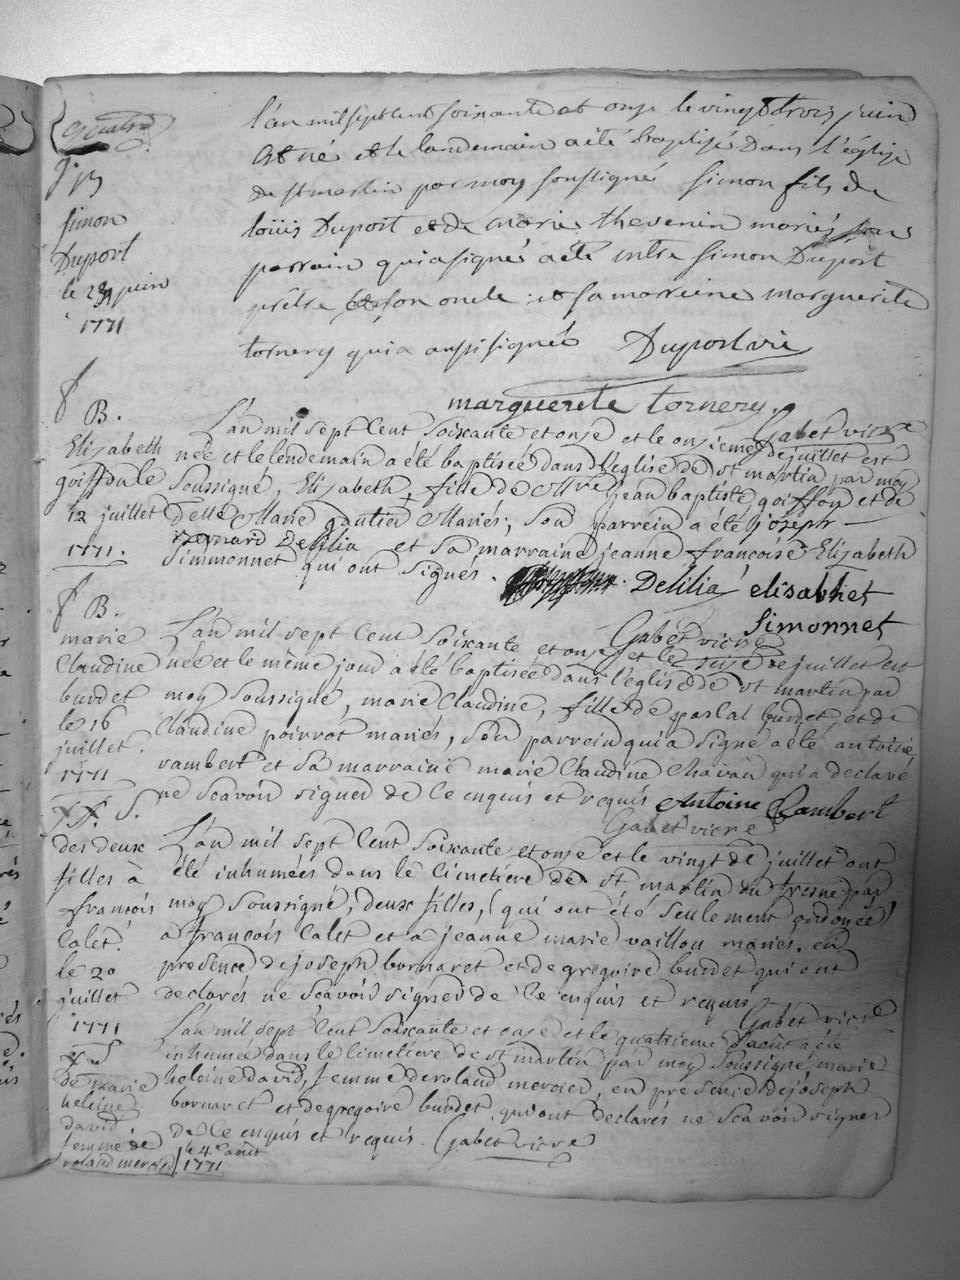 l'an mil sept cent soixante et onze le vingt trois juin
est né et le landemain a été baptisé dans l'église
de st martin par moy soussigné simon fils de
loüis Duport et de marie thevenin mariés son
parrain qui a signé a été mtre simon Duport
prêtre et son oncle et sa marreine marguerite
tornery qui a aussi signé Duport vic
marguerite tornery.
B.
simon
Duport
le 23 juin
1771
Gabet vicre
L'an mil sept cent soixante et onze et le onzieme de juillet est
née et le lendemain a été baptisée dans l'eglise de st martin par moy
soussigné, Elizabeth, fille de Mtre jean baptiste goiffon et de
delle Marie gautier Mariés, son parrein a été joseph
bernard Delilia et sa marraine jeanne françoise Elizabeth
Simmonnet qui ont signés. Delilia elisabhet
Simonnet
B.
Elizabeth
12 juillet
1771.
Gabet vicre
L'an mil sept cent soixante et onze et le seize de juillet est
née et le même jour a été baptisée dans l'eglise de st martin par
moy soussigné, marie Claudine, fille de pascal burdet, et de
Claudine poirrot mariés, son parrein qui a signé a été antoine
rambert et sa marraine marie Claudine Chavan qui a declaré
ne scavoir signer de ce enquis et requis Antoine Rambert
Gabet vicre
B.
marie
Claudine
burdet
le 16
juillet.
1771
L'an mil sept cent soixante et onze et le vingt de juillet ont
été inhumées dans le cimetiere de st martin du fresne par
moy soussigné, deux filles, (qui ont été seulement ondoyées)
a françois Calet et a jeanne marie vaillou mariés. en
presence de joseph bornaret et de gregoire burdet qui ont
declarés ne scavoir signer de ce enquis et requis
Gabet vicre
S.
des deux
filles à
françois
Calet.
le 20
juillet
1771
L'an mil sept cent soixante et onze et le quatrieme d'aout a été
inhumée dans le cimetiere de st martin par moy soussigné, marie
heleine david, femme de roland mercier, en presence de joseph
bornaret et de gregoire burdet qui ont declarés ne scavoir signer
de ce enquis et requis. Gabet vicre
de marie
heleine
david.
femme de
roland mercier
le 4e aout
1771